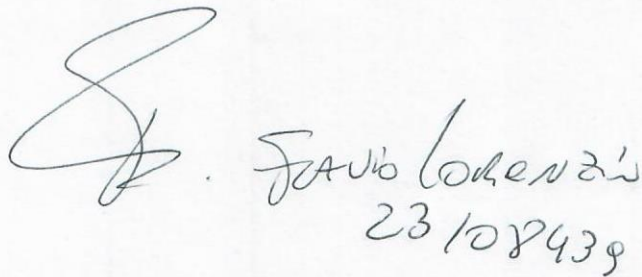 Flavio Lorenzin
23/08439